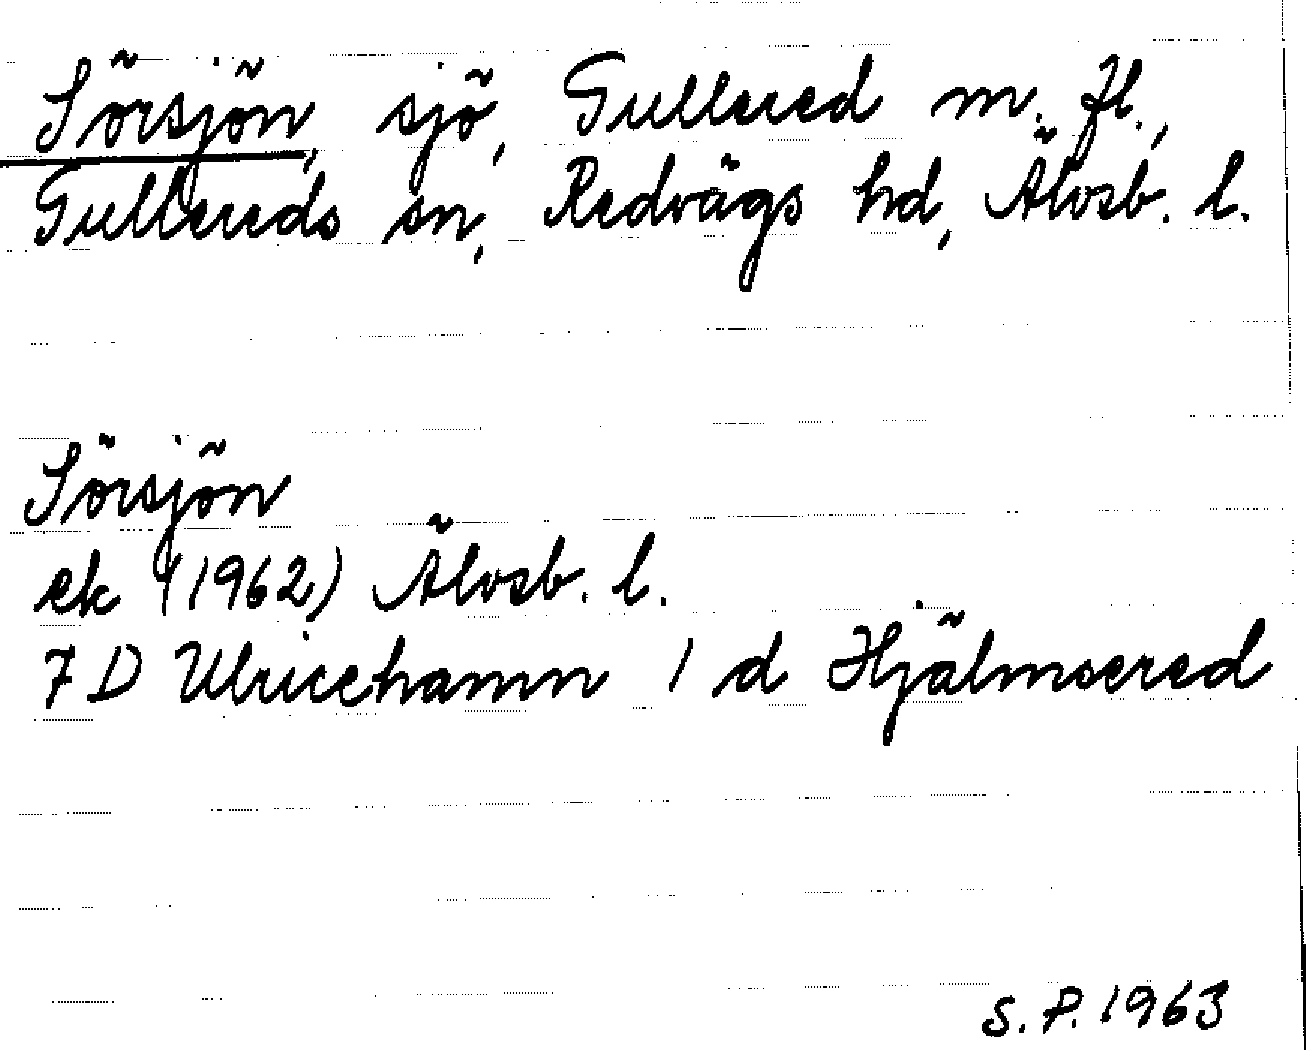 Sörsjön, sjö, Gullered m. fl.,
Gullereds sn, Redvägs hd, Älvsb. l.
Sörsjön
ek (1962) Älvsb. l.
7 D Ulricehamn 1 d Hjälmsered
S. P. 1963